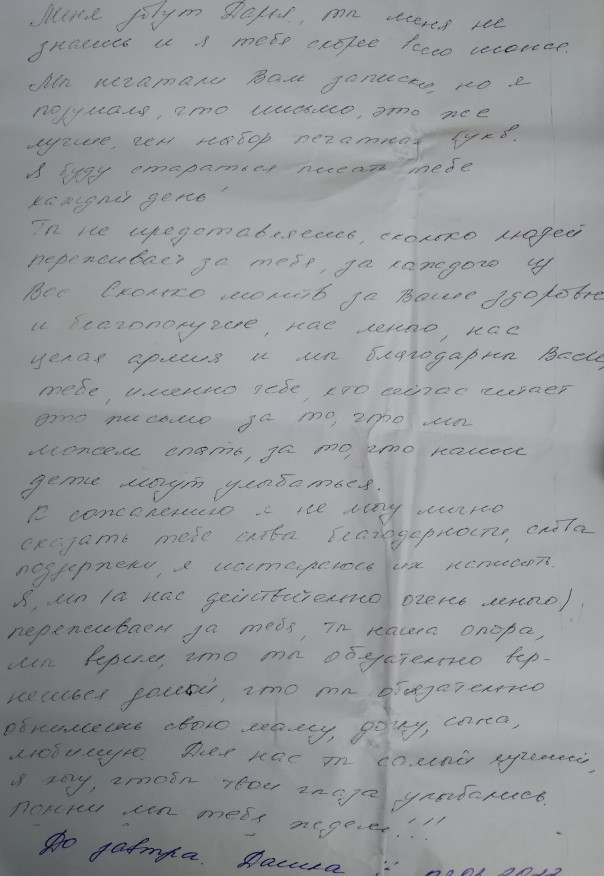 Меня зовут Дарья, ты меня не
знаешь и я тебя скорее всего тоже.
Мы печатали Вам записки, но я
подумала, что письмо, это же
лучше, чем набор печатных букв.
Я буду стараться писать тебе
каждый день
Ты не представляешь, сколько людей
переживает за тебя, за каждого из
Вас Сколько молитв за Ваше здоровье
и благополучие, нас много, нас
целая армия и мы благодарны Вам,
тебе, именно тебе, кто сейчас читает
это письмо за то, что мы
можем спать, за то, что наши
дети могут улыбаться.
К сожалению я не могу лично
сказать тебе слова благодарности, слова
поддержки, я постараюсь их написать.
Я, мы (а нас действительно очень много)
переживаем за тебя, ты наша опора,
мы верим, что ты обязательно вер-
нешься домой, что ты обязательно
обнимешь свою маму, дочку, сына,
любимую. Для нас ты самый лучший,
я хочу, чтобы твои глаза улыбались.
Помни мы тебя ждем!!!
До завтра. Дашка